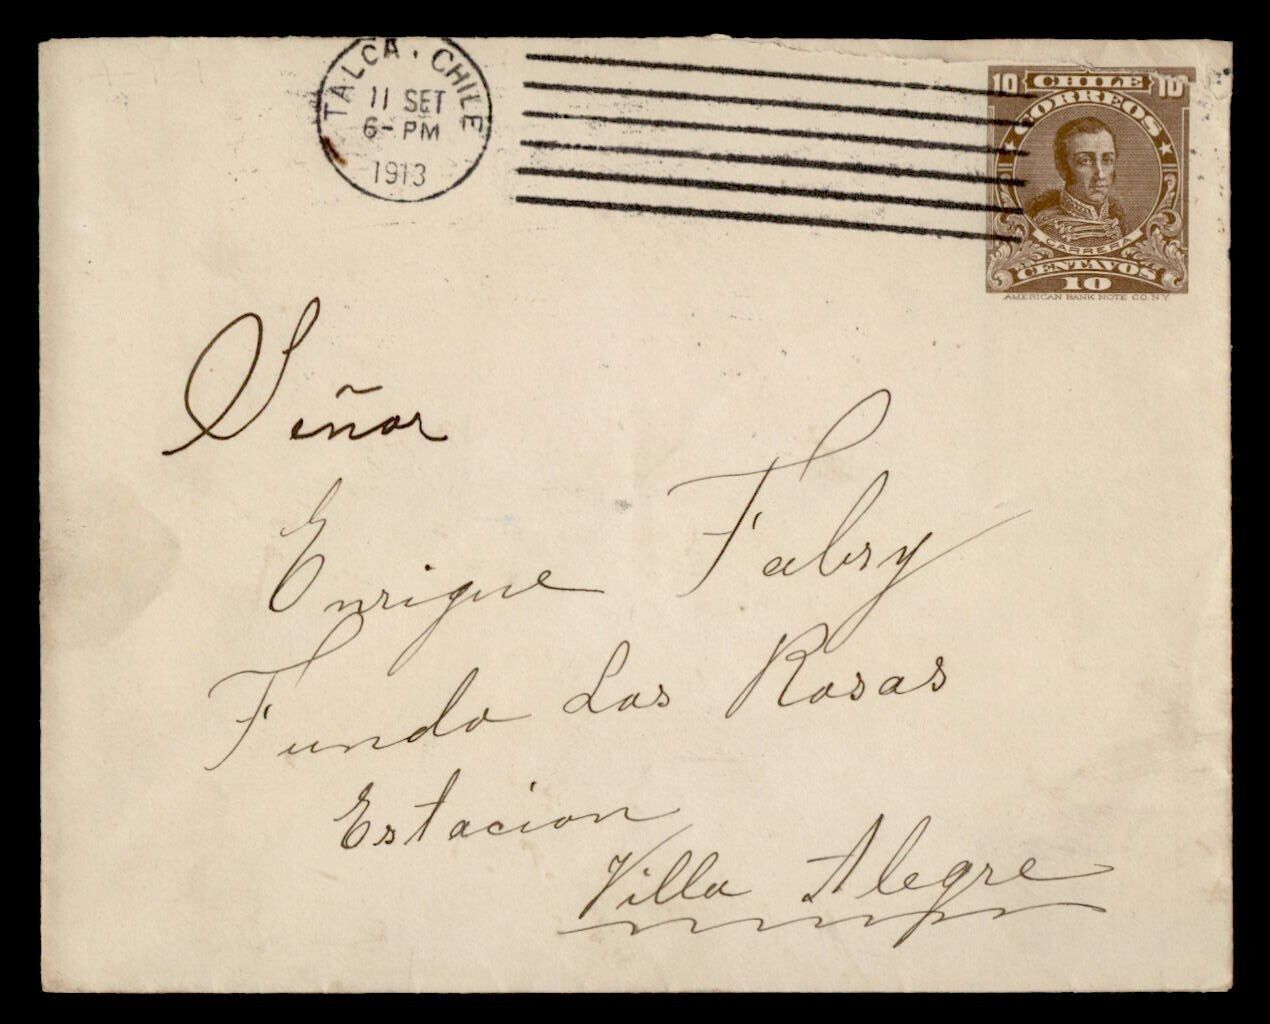 TALCA . CHILE
11 SET
6- PM
1913
10 CHILE 10
CORREOS
CARRERA
CENTAVOS
10
AMERICAN BANK NOTE CO. N.Y.
Señor
Enrique Fabry
Fundo Las Rosas
Estacion
Villa Alegre